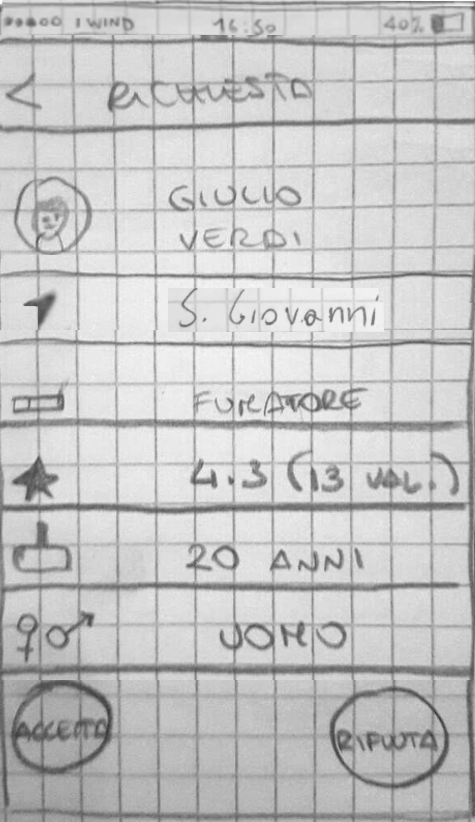 WIND 16:50 40%
< RICHIESTA
GIULIO
VERDI
S. Giovanni
FUMATORE
4.3 (13 VAL.)
20 ANNI
UOMO
ACCETTA RIFIUTA